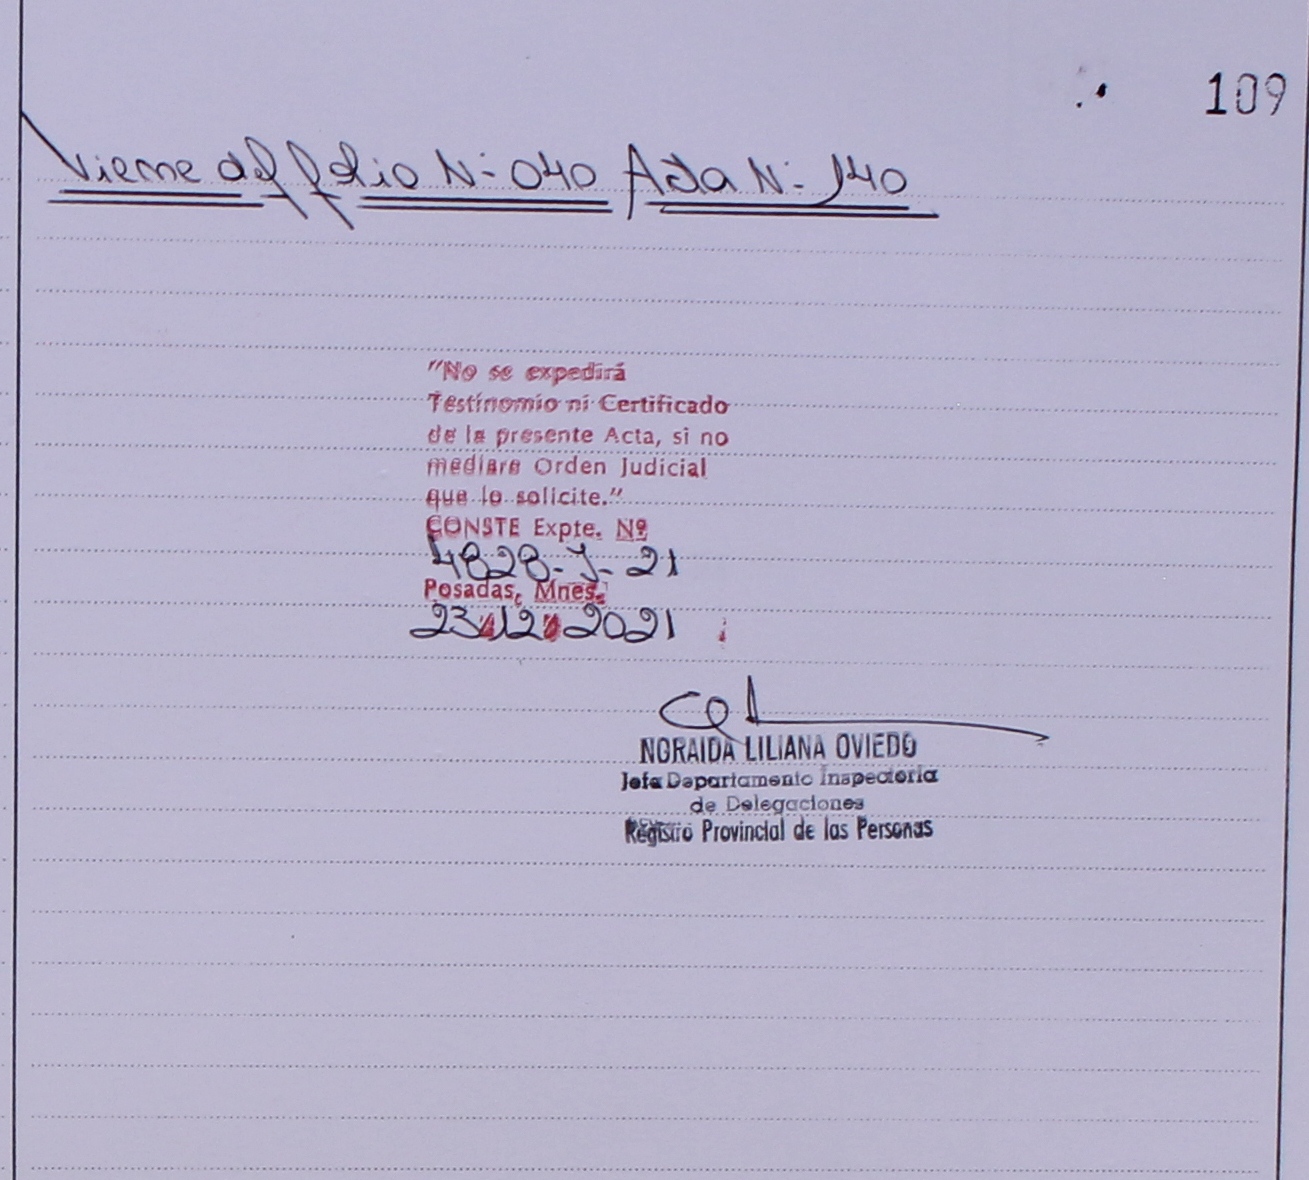 109
Viene del folio N- 040 Acta N- 140
"No se expedirá
Testinomio ni Certificado
de la presente Acta, si no
mediare Orden Judicial
que lo solicite."
CONSTE Expte. Nº
4828-J-21
Posadas, Mnes.
23 12 2021
NORAIDA LILIANA OVIEDO
Jefa Departamento Inspectoria
de Delegaciones
Registro Provincial de las Personas